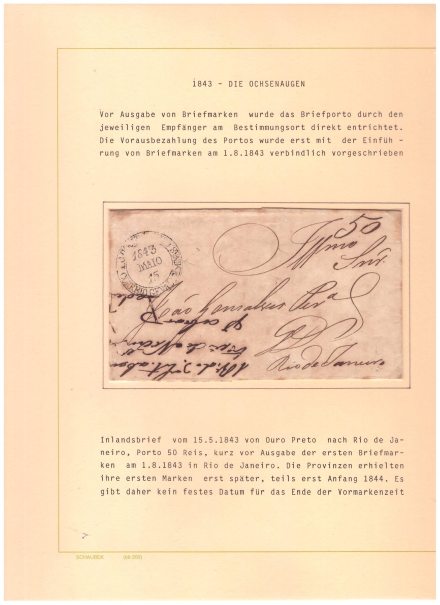 1843 - DIE OCHSENAUGEN
Vor Ausgabe von Briefmarken wurde das Briefporto durch den
jeweiligen Empfänger am Bestimmungsort direkt entrichtet.
Die Vorausbezahlung des Portos wurde erst mit der Einfüh -
rung von Briefmarken am 1.8.1843 verbindlich vorgeschrieben
50
1843
MAIO
15
Illmo
Snr
João Gonsalves
Rio de Janeiro
Inlandsbrief vom 15.5.1843 von Ouro Preto nach Rio de Ja-
neiro, Porto 50 Reis, kurz vor Ausgabe der ersten Briefmar-
ken am 1.8.1843 in Rio de Janeiro. Die Provinzen erhielten
ihre ersten Marken erst später, teils erst Anfang 1844. Es
gibt daher kein festes Datum für das Ende der Vormarkenzeit
SCHAUBEK